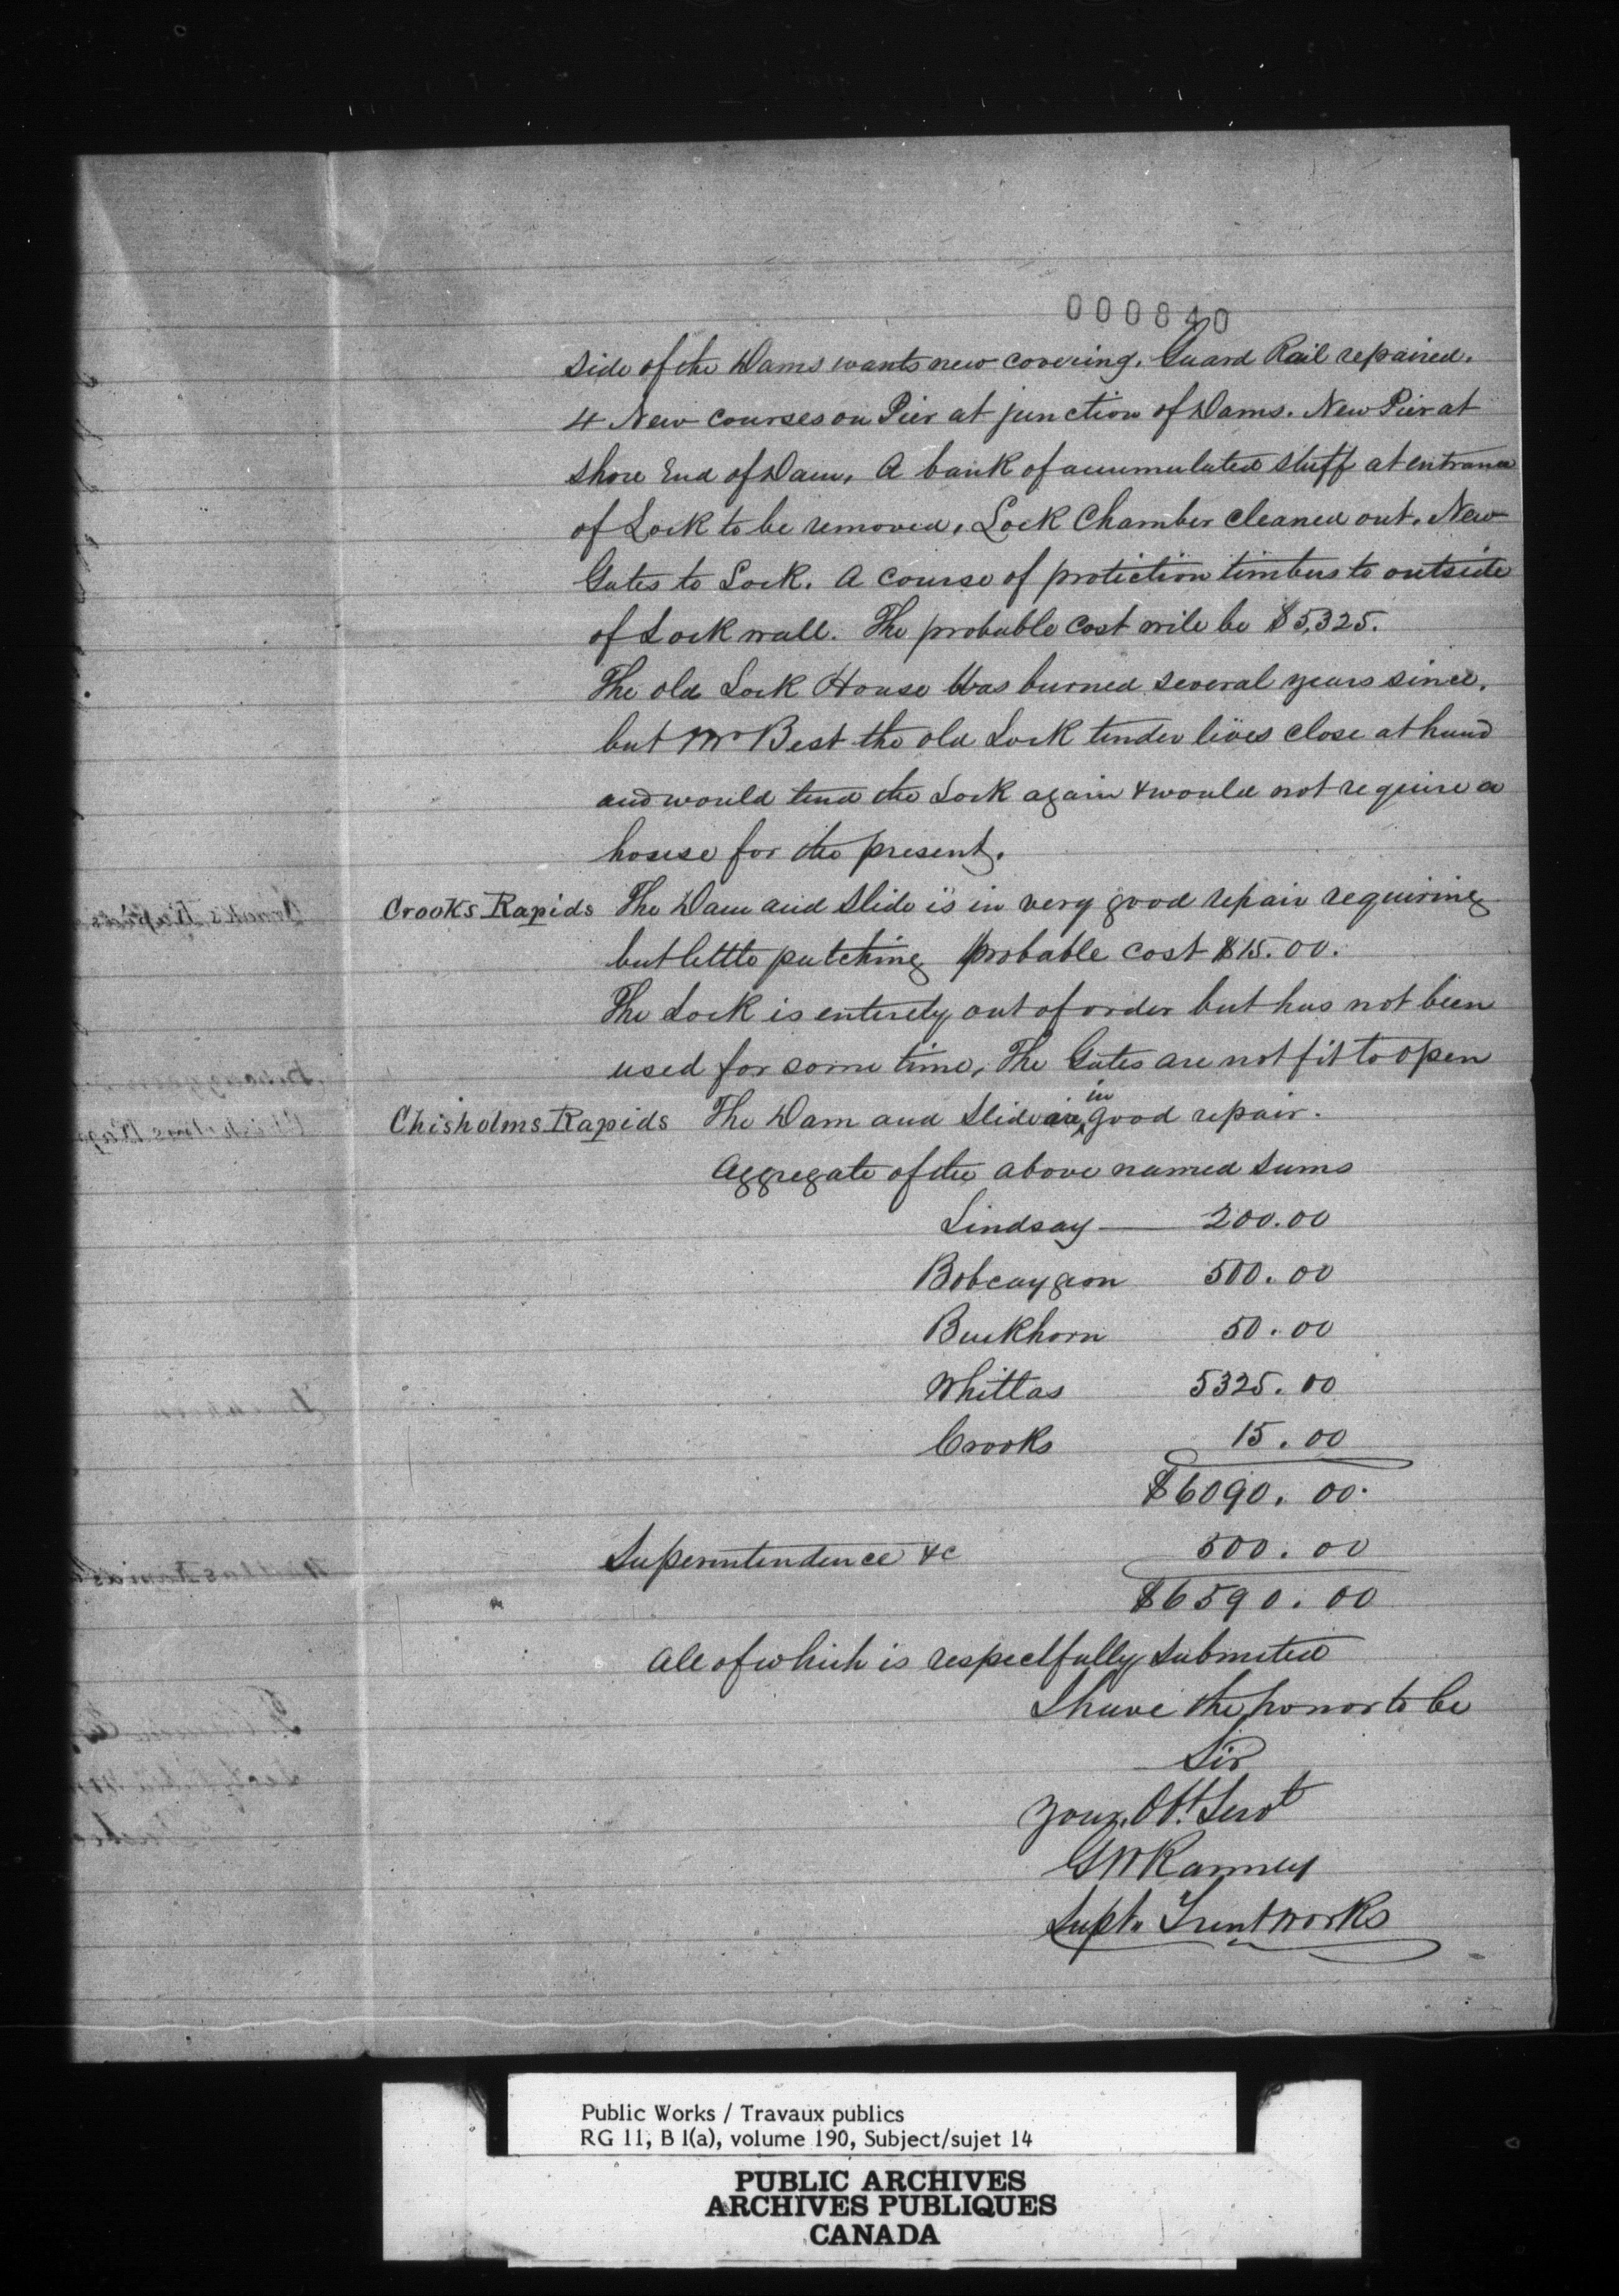 000840
side of the Dams wants new covering. Guard Rail repaired.
4 New courses on Pier at junction of Dams. New Pier at
shore End of Dam, A bank of accumulated stuff at entrance
of Lock to be removed, Lock Chamber cleaned out. New
Gates to Lock. A course of protection timbers to outside
of Lock wall. The probable cost will be $5,325.
The old Lock House Was burned several years since,
but Mr Best the old Lock tender lives close at hand
and would tend the Lock again & would not require a
house for the present.
Crooks Rapids The Dam and Slide is in very good repair requiring
but little patching probable cost $15.00.
The Lock is entirely out of order but has not been
used for some time, The Gates are not fit to open
Chisholms Rapids The Dam and Slide are in good repair.
Aggregate of the above named sums
Lindsay — 200.00
Bobcaygeon 500.00
Buckhorn 50.00
Whitlas 5325.00
Crooks 15.00
$6090.00.
Superintendence &c 500.00
$6590.00
All of which is respectfully submitted
I have the honor to be
Sir
Your Obt. Servt
GW Ranney
Supt. Trent Works
Public Works / Travaux publics
RG 11, B 1(a), volume 190, Subject/sujet 14
PUBLIC ARCHIVES
ARCHIVES PUBLIQUES
CANADA